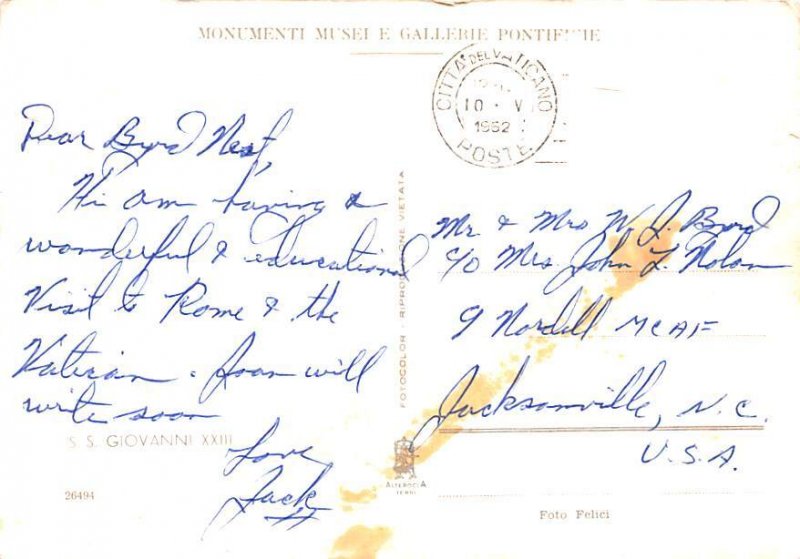 MONUMENTI MUSEI E GALLERIE PONTIFICIE
CITTÀ DEL VATICANO
10 · V
1962
POSTE
Dear Byrd Nest,
Hi am having a
wonderful & educational
Visit to Rome & the
Vatican. Joan will
write soon
Love
Jack
S. S. GIOVANNI XXIII
26494
FOTOCOLOR - RIPRODUZIONE VIETATA
ALTEROCCA
TERNI
Mr & Mrs W. L. Byrd
c/o Mrs John L. Nolan
9 Nordell MCAF
Jacksonville, N.C.
U.S.A.
Foto Felici